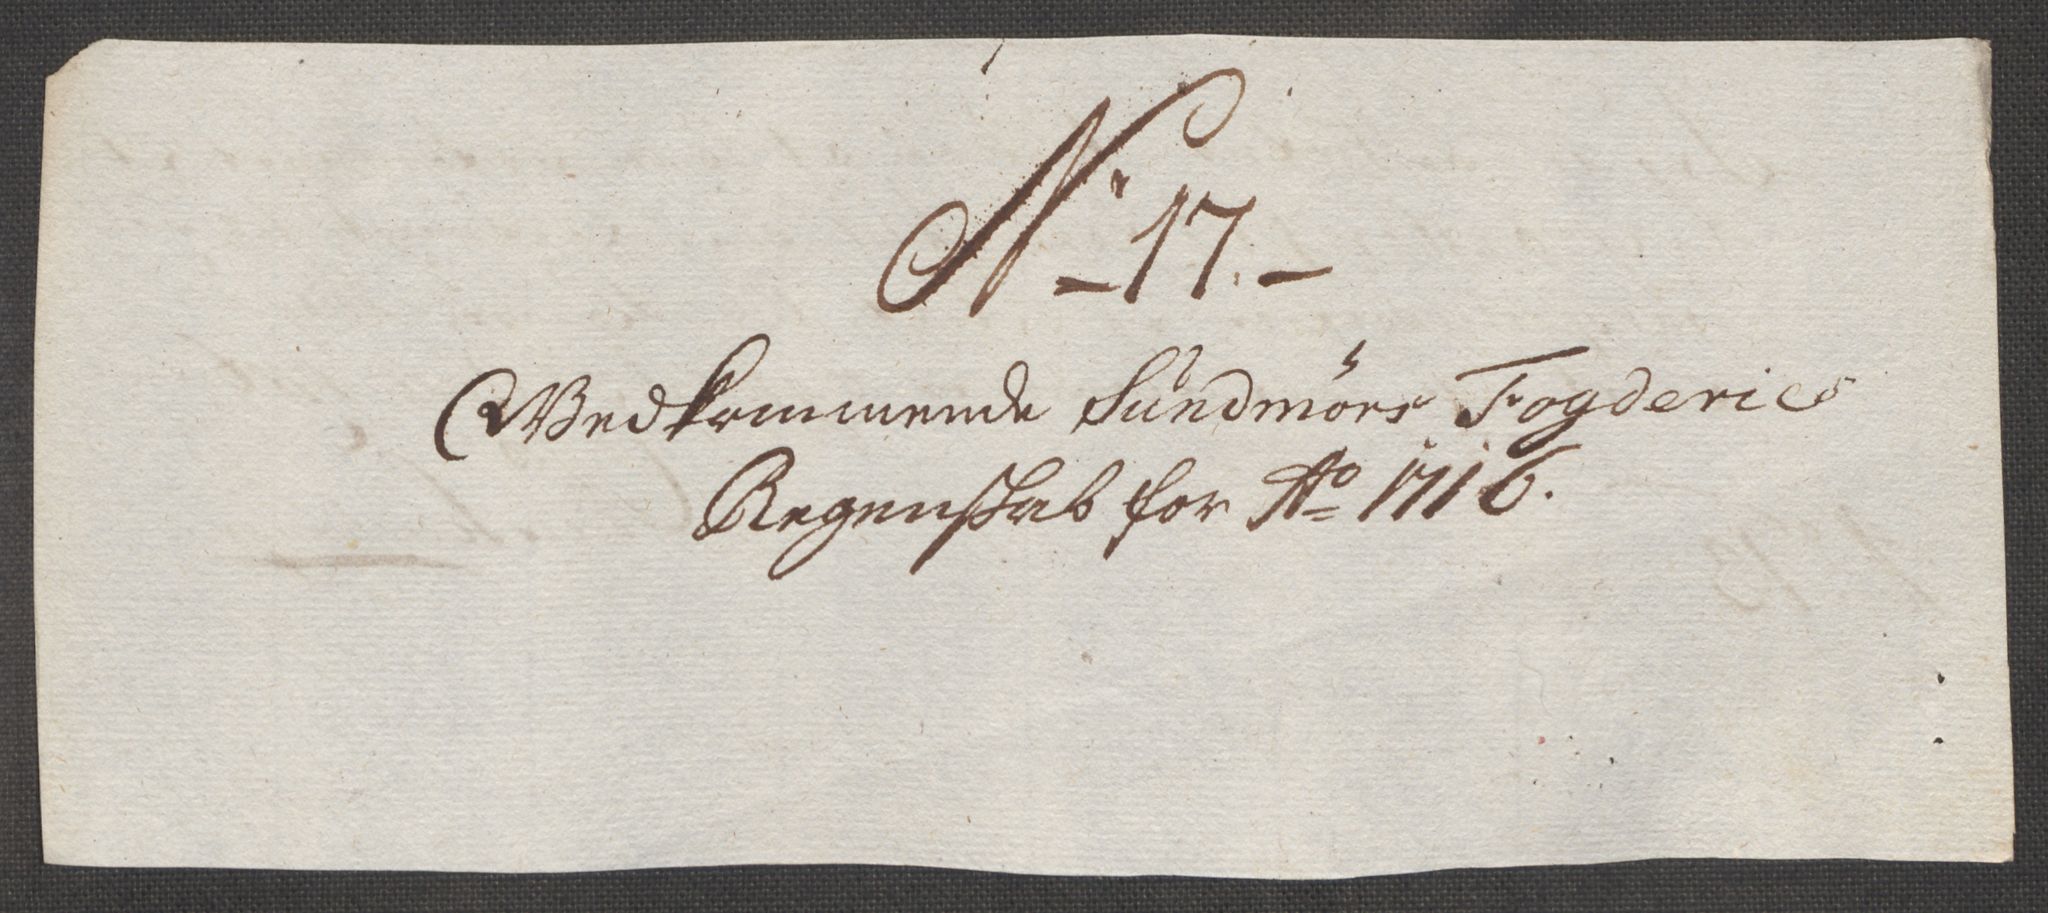 N: 17.
Vedkommende Sundmörs Fogderies
Regenskab for Ao 1716.